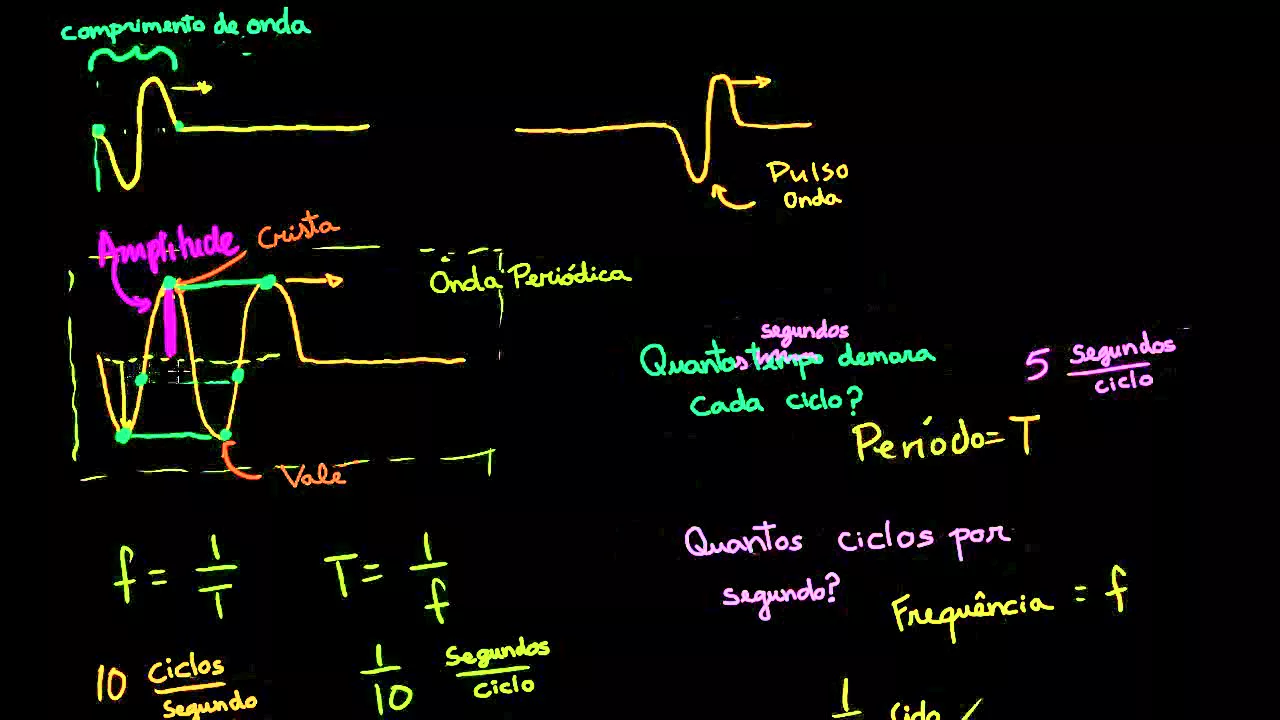 comprimento de onda
Pulso
Onda
Amplitude
Crista
Onda Periódica
Vale
segundos
Quantos tempo demora
cada ciclo?
5 segundos
ciclo
Período = T
f = 1
T
T = 1
f
Quantos ciclos por
segundo?
Frequência = f
10 ciclos
segundo
1 segundos
10 ciclo
1